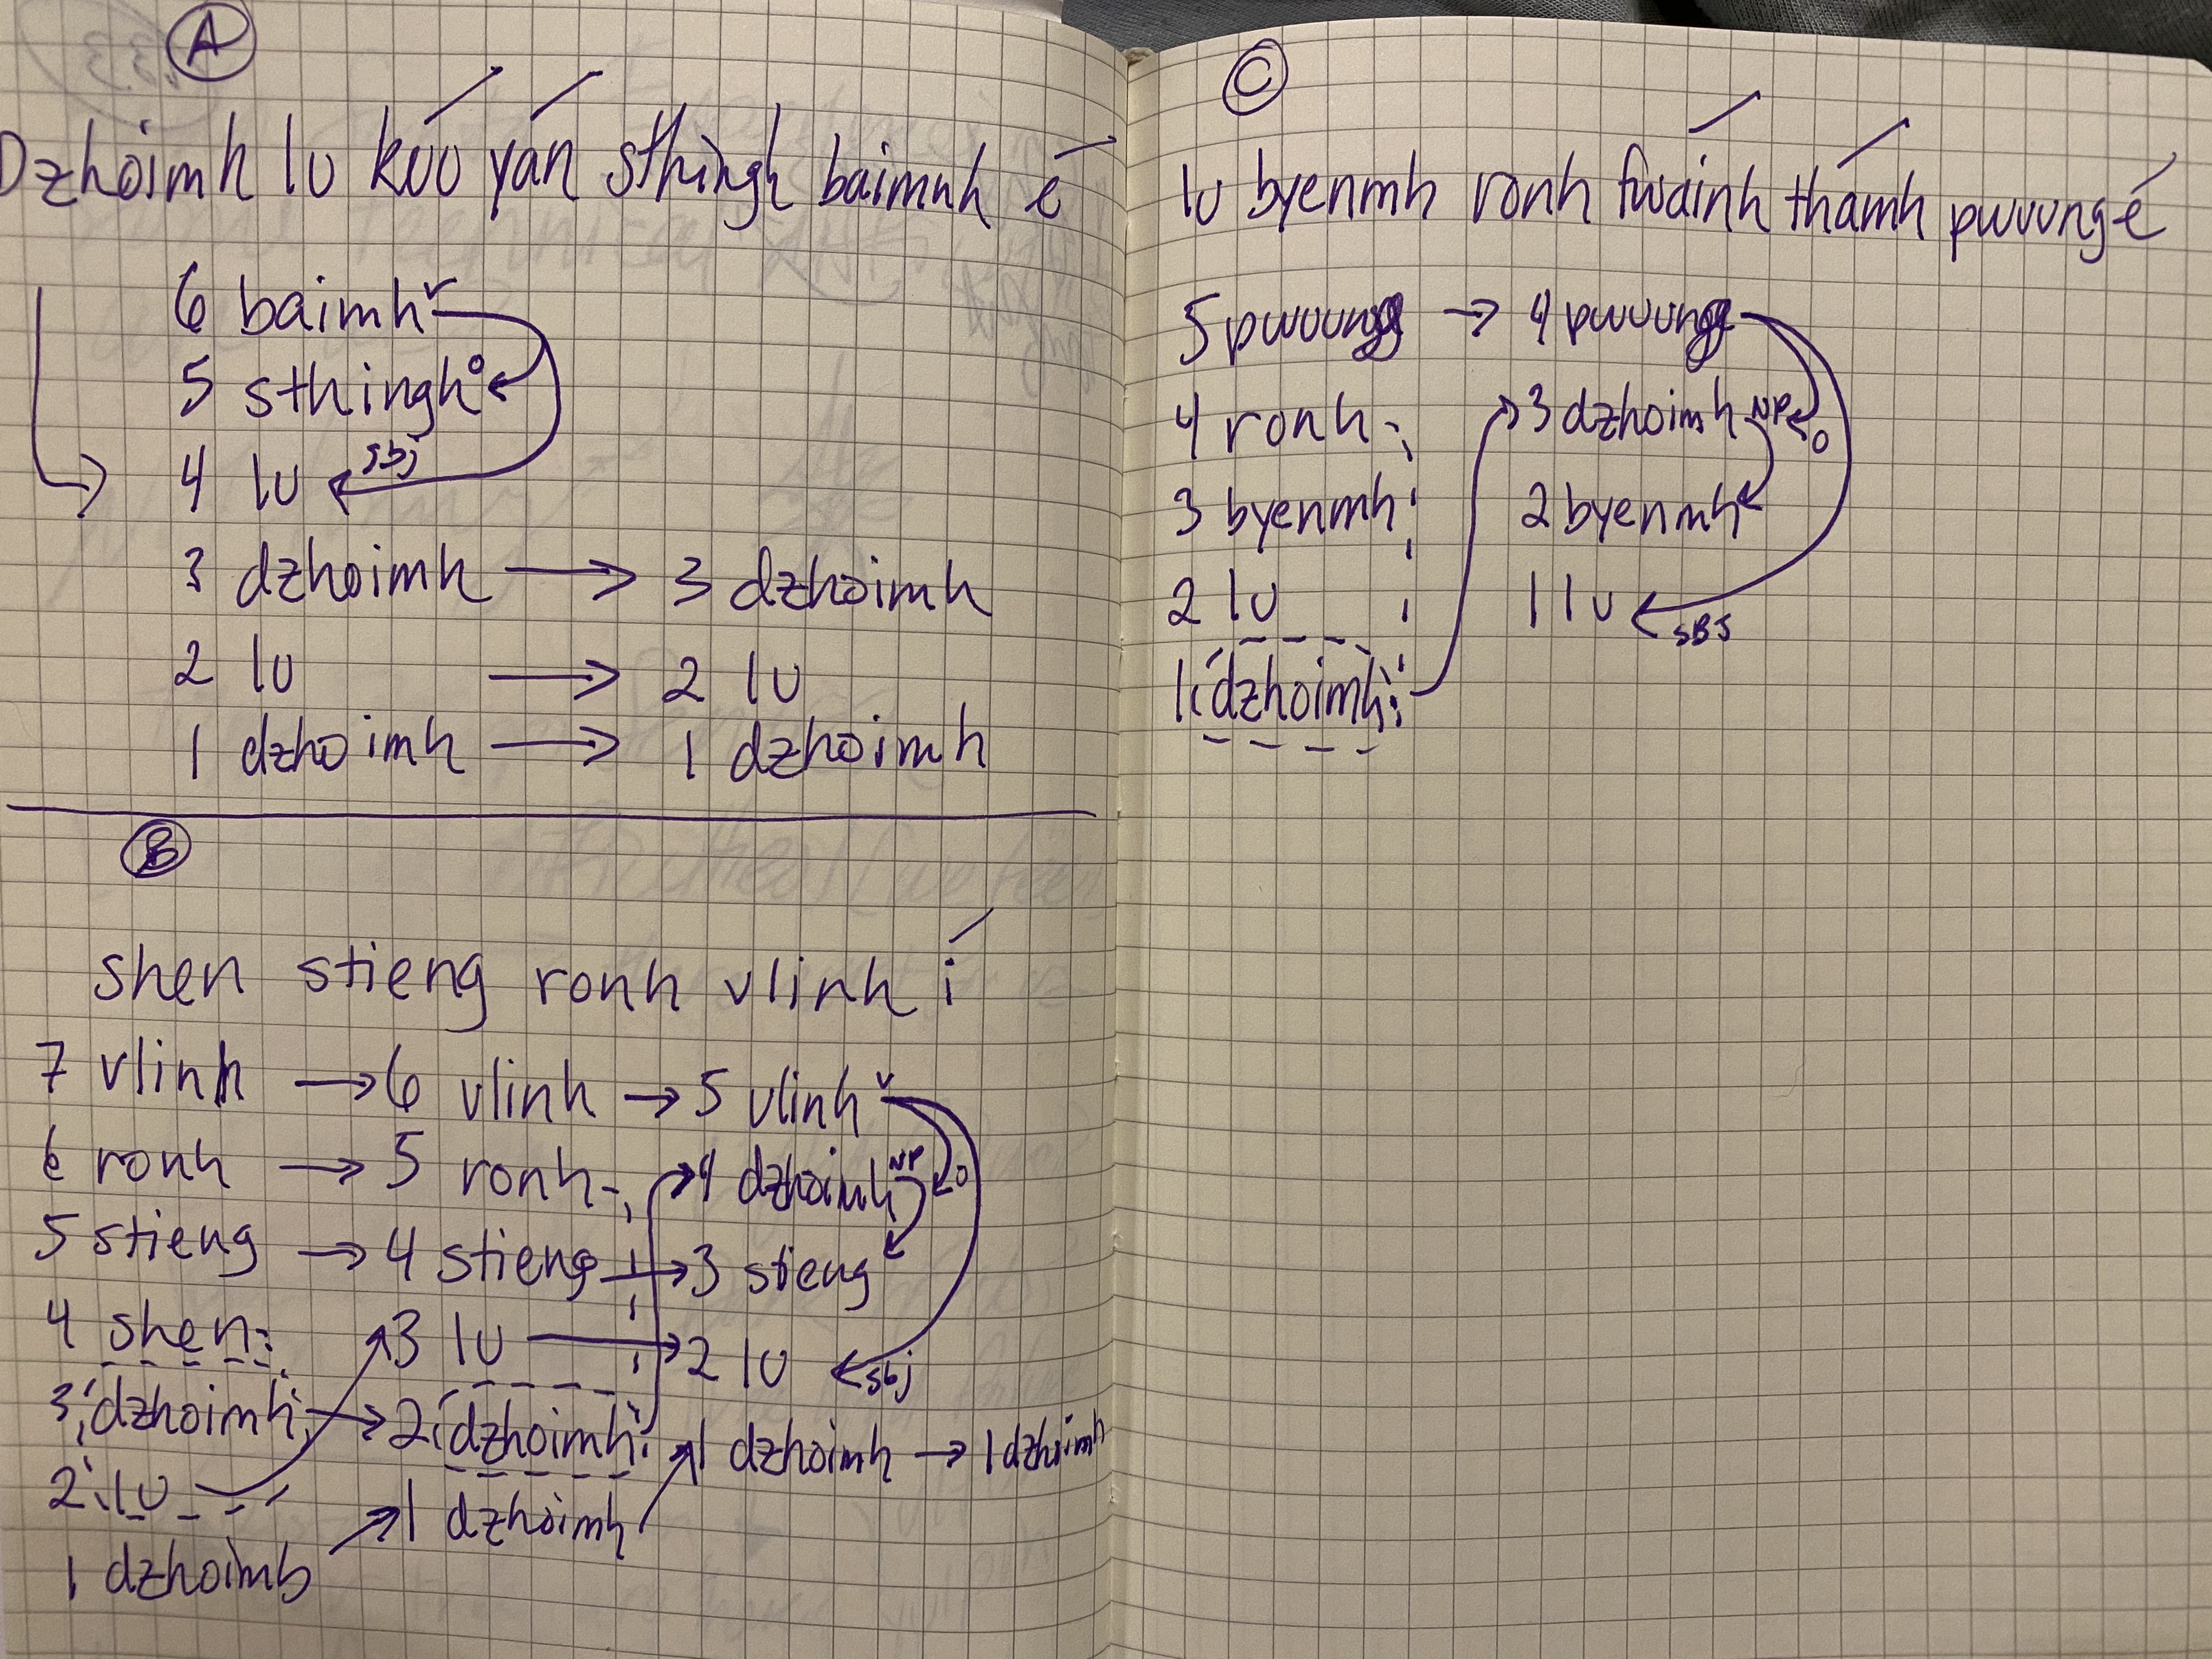 A
Dzhoimh lu kúu yán sthingh baimnh é
6 baimh v
5 sthingh o
4 lu sbj
3 dzhoimh → 3 dzhoimh
2 lu → 2 lu
1 dzhoimh → 1 dzhoimh
B
shen stieng ronh vlinh í
7 vlinh → 6 vlinh → 5 vlinh v
6 ronh → 5 ronh → 4 dzhoimh NP o
5 stieng → 4 stieng → 3 stieng
4 shen 3 lu → 2 lu sbj
3 dzhoimh → 2 dzhoimh 1 dzhoimh → 1 dzhoimh
2 lu 1 dzhoimh
1 dzhoimh
C
lu byenmh ronh fwáinh thámh pwuung é
5 pwuung → 4 pwuung
4 ronh 3 dzhoimh NP o
3 byenmh 2 byenmh
2 lu 1 lu SBJ
1 dzhoimh